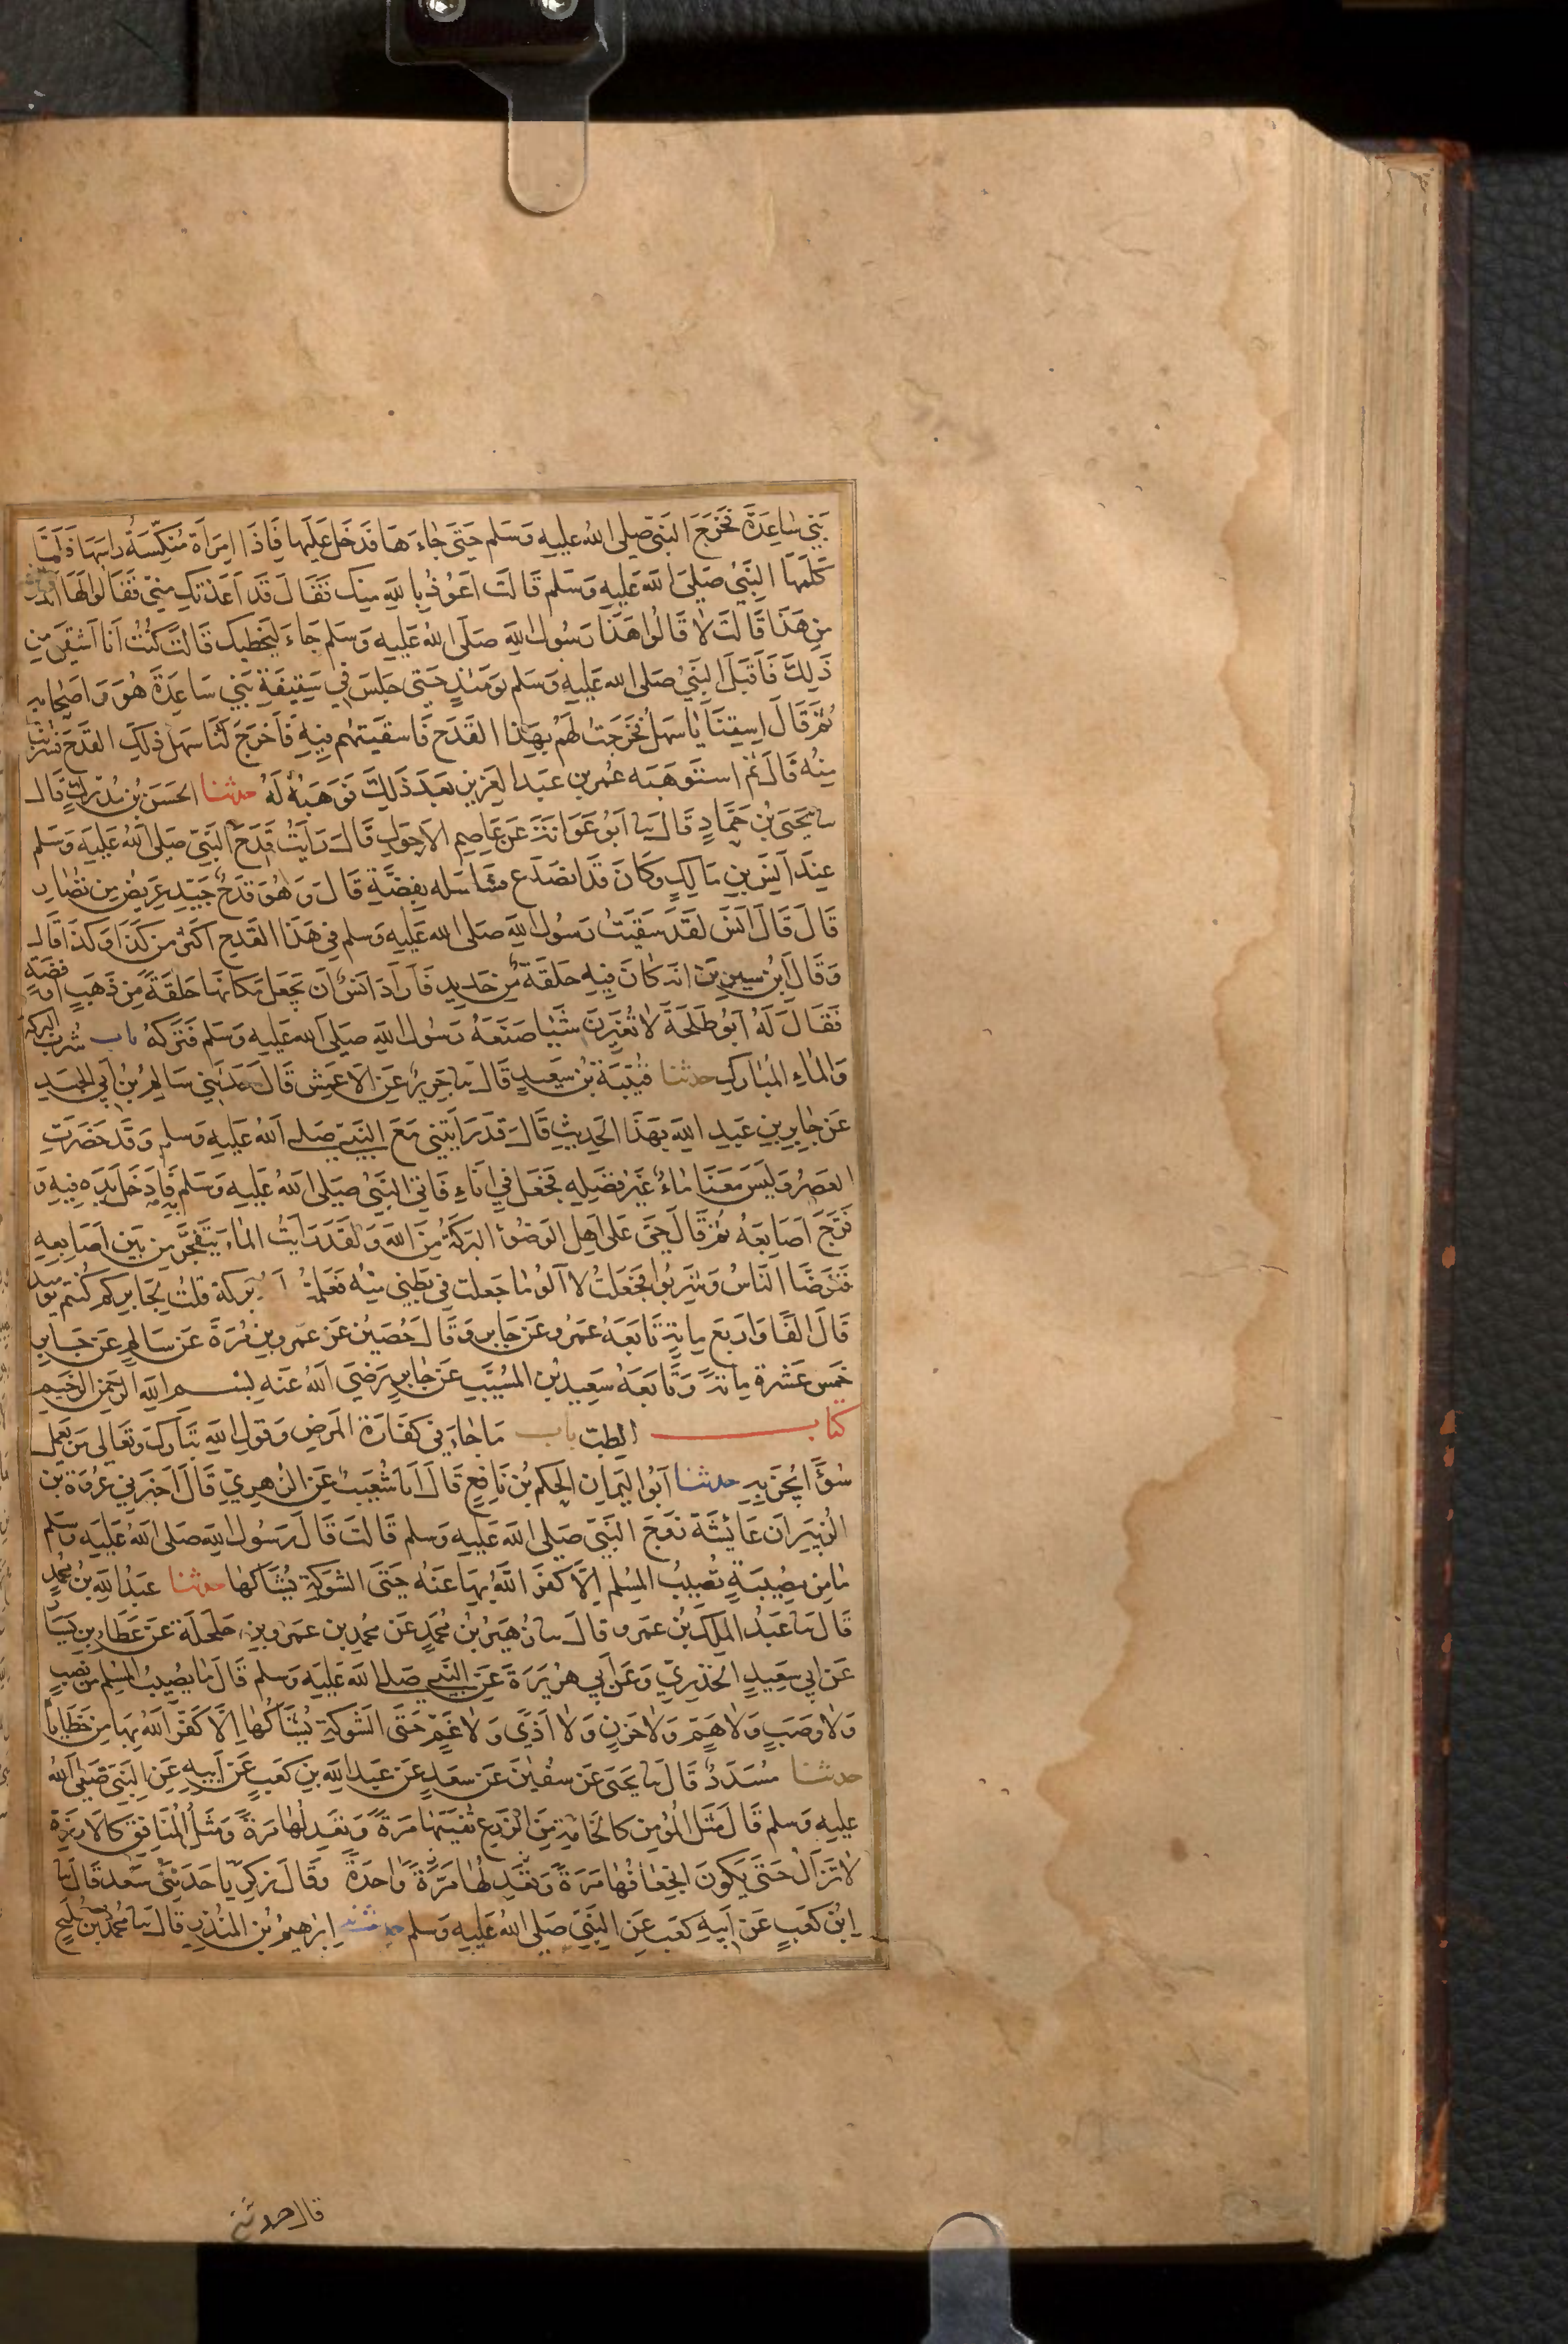 بَني سَاعِدَةَ فخَرَجَ النَبيّ صلى الله عليه وَسَلم حَتىَ جَاءَهَا فدَخَل عَليهَا فَاذَا امرَأة مُنَكِسَةُ راسَهَا فَلَمَّا
كَلمَهَا النَبيُ صَلى الله عَليهِ وَسَلم قَالَت اَعُوذُ بالله مِنك فَقَالَ قَد اَعَذتكِ مِنيّ فَقَالوا لهَا اَتدرين
مَن هَذَا قَالَت لا قَالوا هَذَا رَسُول الله صَلى الله عَليهِ وَسَلم جَاءَ ليَخطبكِ قَالَت كنتُ اَنا اَشقىَ مِن
ذَلِكَ فَاَقبَلَ النَبيُ صَلى الله عَليهِ وَسَلم يَومَئذٍ حَتى جَلسَ في سَقِيفَةِ بَني سَاعِدَةَ هُوَ وَاصحَابه
ثمَ قَالَ اسقِنَا يَا سَهل فخَرَجت لهُم بهَذا القَدَح فَاسقَيتهُم فيهِ فَاَخرَجَ لنَا سَهل ذلِكَ القدَحَ فشَربنا
مِنهُ قَالَ ثم استَوهَبَه عُمر بن عَبد العَزيز بَعدَ ذَلِكَ فَوَهَبَهُ لَهُ حدثنا الحَسَن بن مُدرِكٍ قَالَ
ىا يَحيىَ بنُ حَمَّادٍ قَالَ ىا اَبُو عَوَانَة عَن عَاصِم الاَحوَلِ قَالَ رَاَيتُ قَدَحَ النَبيّ صَلى الله عَليهِ وَسَلم
عِندَ اَنَس بن مَالِكٍ وَكَانَ قَد انصَدَع فسَلسَله بفِضَّةٍ قَالَ وَهُوَ قدَحٌ جَيِّد عَريض مِن نضَارٍ
قَالَ قَالَ اَنَس لقَد سَقَيتُ رَسُول الله صَلى الله عَليهِ وَسَلم في هَذَا القَدَح اكثر مِن كَذَا وَكذَا قَالَ
وَقَالَ ابن سيرين انهَ كَانَ فِيهِ حَلقَة مِن حَدِيدٍ فَاَرَادَ اَنَسٌ اَن يَجعَل مَكانهَا حَلقَةً مِن ذَهَب او فضةٍ
فَقَالَ لَهُ اَبُو طَلحَةَ لا تُغَيِّرَن شَيئا صَنَعَهُ رَسُول الله صَلى الله عَليهِ وَسَلم فتَرَكَهُ باب شُرب البركة
وَالمَاءِ المُبَارك حدثنا قُتيبَة بنُ سَعِيدٍ قَالَ ىا جَريرٌ عَن الاَعمَش قَالَ حَدَّثَني سَالِمُ بن اَبي الجَعدِ
عَن جَابِر بن عَبدِ الله بهَذَا الحَدِيثِ قَالَ قَد رَايتني مَعَ النَبي صَلى الله عَليهِ وَسلم وَقَد حَضَرَت
العَصرُ وَليسَ مَعَنَا مَاءٌ غَيرَ فضلِهِ فجُعِل في اِنَاءٍ فَاتي النَبيُ صَلى الله عَليهِ وَسَلم بهِ فَادخَلَ يَدَه فيهِ وَ
فَرَّجَ اَصَابِعَهُ ثمَ قَالَ حَيَّ عَلى اَهل الوَضُوءِ البَرَكَةُ مِنَ الله وَلَقَد رَاَيتُ الماءَ يَتفَجَّر مِن بَين اَصَابِعِهِ
فتَوَضَّا النَّاسُ وَشَربُوا فجَعَلتُ لا آلوُ مَا جَعلت في بَطني مِنه فعَلِمتُ اَ برَكة قلتُ لجَابر كم كنتم يومئذ
قَالَ الفَا وَاربَع مِايَةٍ تَابَعَهُ عَمرُو عَن جَابِر وَقَالَ حُصَينٌ عَن عَمرِو بن مُرَةَ عَن سَالِم عَن جَابِر
خَمس عَشرة مِايةً وَتَابَعَهُ سَعِيدُ بن المُسَيَّب عَن جَابِر رَضيَ الله عَنه بسم الله الرحمن الرحيم
كتاب الطب باب مَا جَاءَ في كَفَارَة المَرض وَقول الله تَبَارَكَ وَتعَالى مَن يَعمَل
سُوءًا يُجزَ بهِ حدثنا اَبُو اليَمَان الحَكم بن نَافِعٍ قَالَ اَىا شُعَيبٌ عَن الزهريّ قَالَ اَخبَرَني عُروَة بن
الزُبَير ان عَائشَة زَوجَ النَبي صَلى الله عَليهِ وَسلم قَالَت قَالَ رَسُول الله صَلى الله عَليهِ وَسَلم
مَا مِن مصِيبَةٍ تُصِيبُ المسُلِم اِلاَّ كَفرَ اللهُ بهَا عَنهُ حَتىَ الشوكَةِ يُشَاكهَا حدثنا عَبدُ الله بن محمدٍ
قَالَ ىا عَبدُ المَلِك بنُ عَمرو قالَ ىا زُهَيرُ بن مُحَمدٍ عَن مُحَمدِ بن عَمرو بن حَلحَلة عَن عَطَاءِ بن يَسَار
عَن اَبي سَعِيدٍ الخدريّ وَعَن اَبي هُرَيرَةَ عَن النَبي صَلى الله عَليهِ وَسلم قَالَ مَا يُصِيبُ المسُلِم مِن نَصَبٍ
وَلا وَصَبٍ وَلا هَمٍّ وَلا حَزنٍ وَلا اَذًى وَلا غَمٍّ حَتَى الشَوكَةِ يُشَاكُهَا اِلاَّ كَفرَ اللهُ بهَا مِن خَطَاياه
حدثنا مُسَدَدٌ قَالَ ىا يَحيَى عَن سفيٰنَ عَن سَعدٍ عَن عَبدِ الله بن كَعبٍ عَن اَبِيهِ عَن النَبي صَلى الله
عليهِ وَسلم قَالَ مَثَل المُؤمِن كالخَامَةِ مِنَ الزَرعِ تفيئهَا مَرَةً وَتعدِلهَا مَرةً وَمَثَلُ المُنَافِق كَالاَرزَةِ
لا تَزَالُ حَتَى يَكُونَ انجعَافُهَا مَرَةً وَتعَدِلهَا مَرَّةً وَاحِدَةً وَقَالَ زَكريّا حَدَثَني سَعد قَالَ ىا
ابنُ كَعبٍ عَن اَبيهِ كَعب عَن النَبي صَلى الله عَليهِ وَسلم حدثنا اِبرٰهِيمُ بن المُنذِر قَالَ ىا مُحَمدُ بن فُليحٍ
قال حدثني